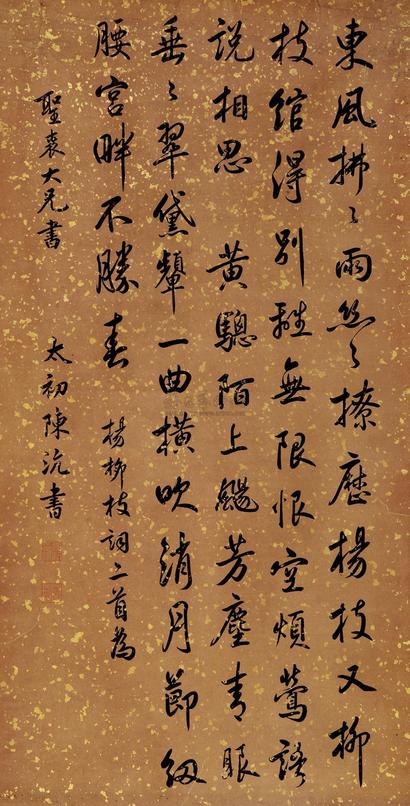 東風拂〻雨絲〻撩歷楊枝又柳
枝綰得別離無限恨空煩鶯語
說相思 黃驄陌上颺芳塵青眼
垂〻翠黛顰一曲橫吹銷月節細
腰宮畔不勝春 楊柳枝詞二首為
聖袁大兄書 太初陳沆書